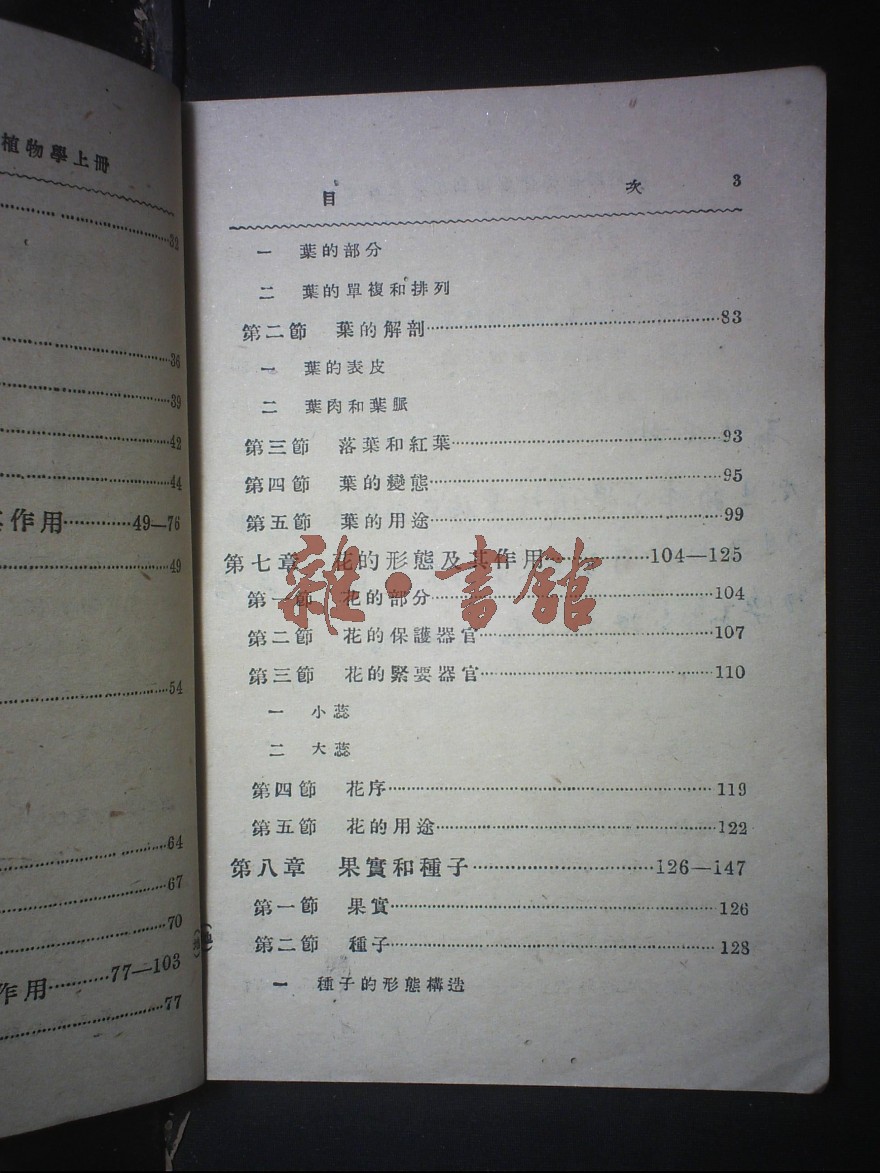 植物學上冊
32
36
39
42
44
其作用…………49—76
49
54
64
67
70
作用…………77—103
77
目 次 3
一 葉的部分
二 葉的單複和排列
第二節 葉的解剖…………83
一 葉的表皮
二 葉肉和葉脈
第三節 落葉和紅葉…………93
第四節 葉的變態…………95
第五節 葉的用途…………99
第七章 花的形態及其作用…………104—125
第一節 花的部分…………104
第二節 花的保護器官…………107
第三節 花的緊要器官…………110
一 小蕊
二 大蕊
第四節 花序…………119
第五節 花的用途…………122
第八章 果實和種子…………126—147
第一節 果實…………126
第二節 種子…………128
一 種子的形態構造
雜·書館